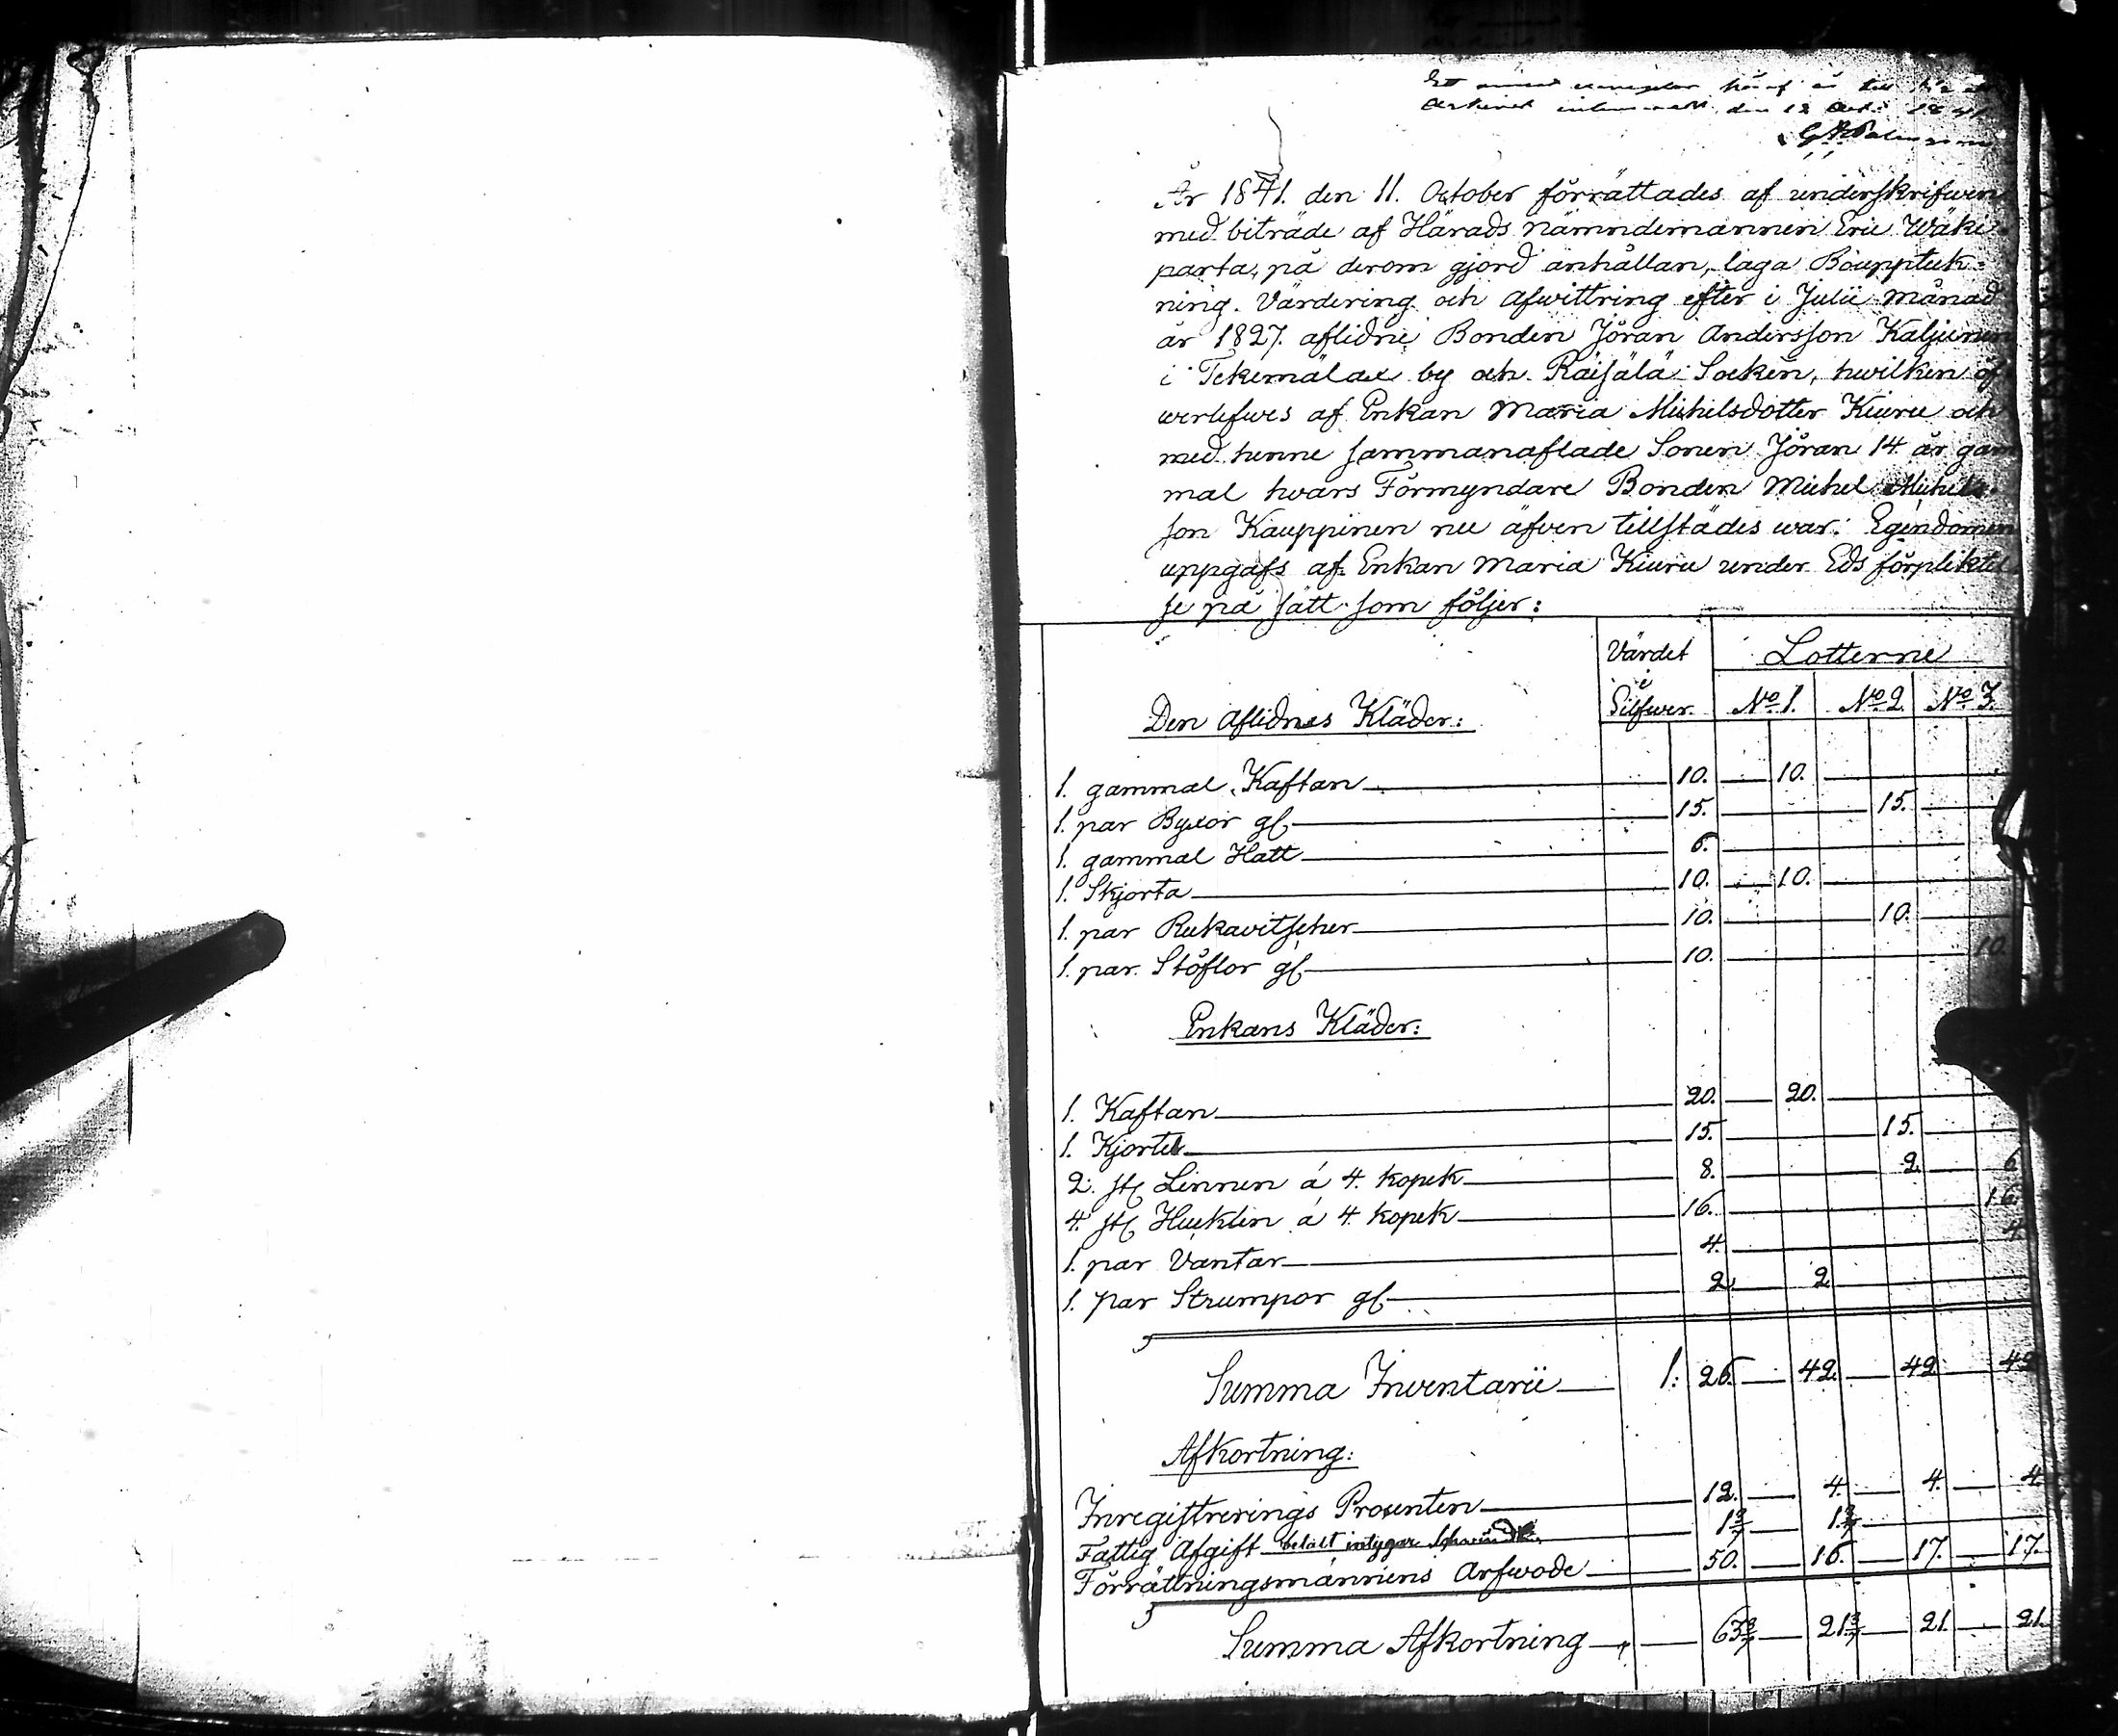 Ett exemplar häraf är till
den 12 Oct: 1841
År 1841. den 11. October förrättades af underskrifwen
med biträde af Härads nämndemannen Eric Wäki-
parta, på derom gjord anhållan, laga Boupptek-
ning. Värdering och afwittring efter i Julii månad
år 1827. aflidne Bonden Jöran Andersson Kaljunen
i by och Räisälä Socken, hwilken öf
werlefwes af Enkan Maria Michelsdotter Kiuru och
med henne sammanaflade Sonen Jöran 14 år gam
mal hwars Förmyndare Bonden Michel Michels-
son Kauppinen nu äfven tillstädes war: Egendomen
uppgafs af Enkan Maria Kiuru under Eds förpliktel
se på sätt som följer:
Värdet i Silfwer. Lotterne
No 1. No 2 No 3.
Den Aflidnes Kläder:
1. gammal Kaftan 10. 10.
1. par Byxor gl 15. 15.
1. gammal Hatt 6.
1. Skjorta 10. 10.
1. par Rukavitscher 10. 10.
1. par Stöflor gl 10. 10.
Enkans Kläder:
1. Kaftan 20. 20.
1. Kjortel 15. 15.
2. st Linnen á 4. kopek 8. 2. 6
4. st Hucklen á 4. kopek 16. 16.
1. par Vantar 4. 4.
1. par Strumpor gl 2. 2
Summa Inventarii 1: 26. 42. 42. 42
Afkortning:
Inregistrerings Procenten 12. 4. 4. 4.
Fattig Afgift betalt intygar 1 3/7 1 3/7
Förrättningsmännens Arfwode 50. 16. 17. 17.
Summa Afkortning 63 3/7 21 3/7 21. 21.